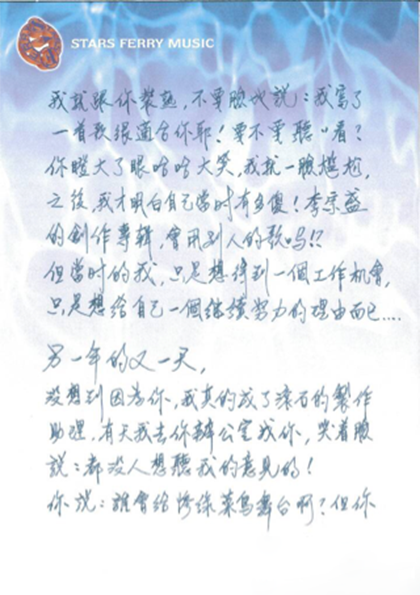 STARS FERRY MUSIC
我就跟你裝熟，不要臉地說：我寫了
一首歌很適合你耶！要不要聽"看？
你瞪大了眼哈哈大笑，我就一臉尷尬，
之後，我才明白自己當時有多傻！李宗盛
的創作專輯，會用別人的歌嗎！？
但當時的我，只是想得到一個工作機會，
只是想給自己一個繼續努力的理由而已....
另一年的又一天，
沒想到因為你，我真的成了滾石的製作
助理，有天我去你辦公室找你，哭著臉
說：都沒人想聽我的意見的！
你說：誰會給慘綠菜鳥舞台啊？但你